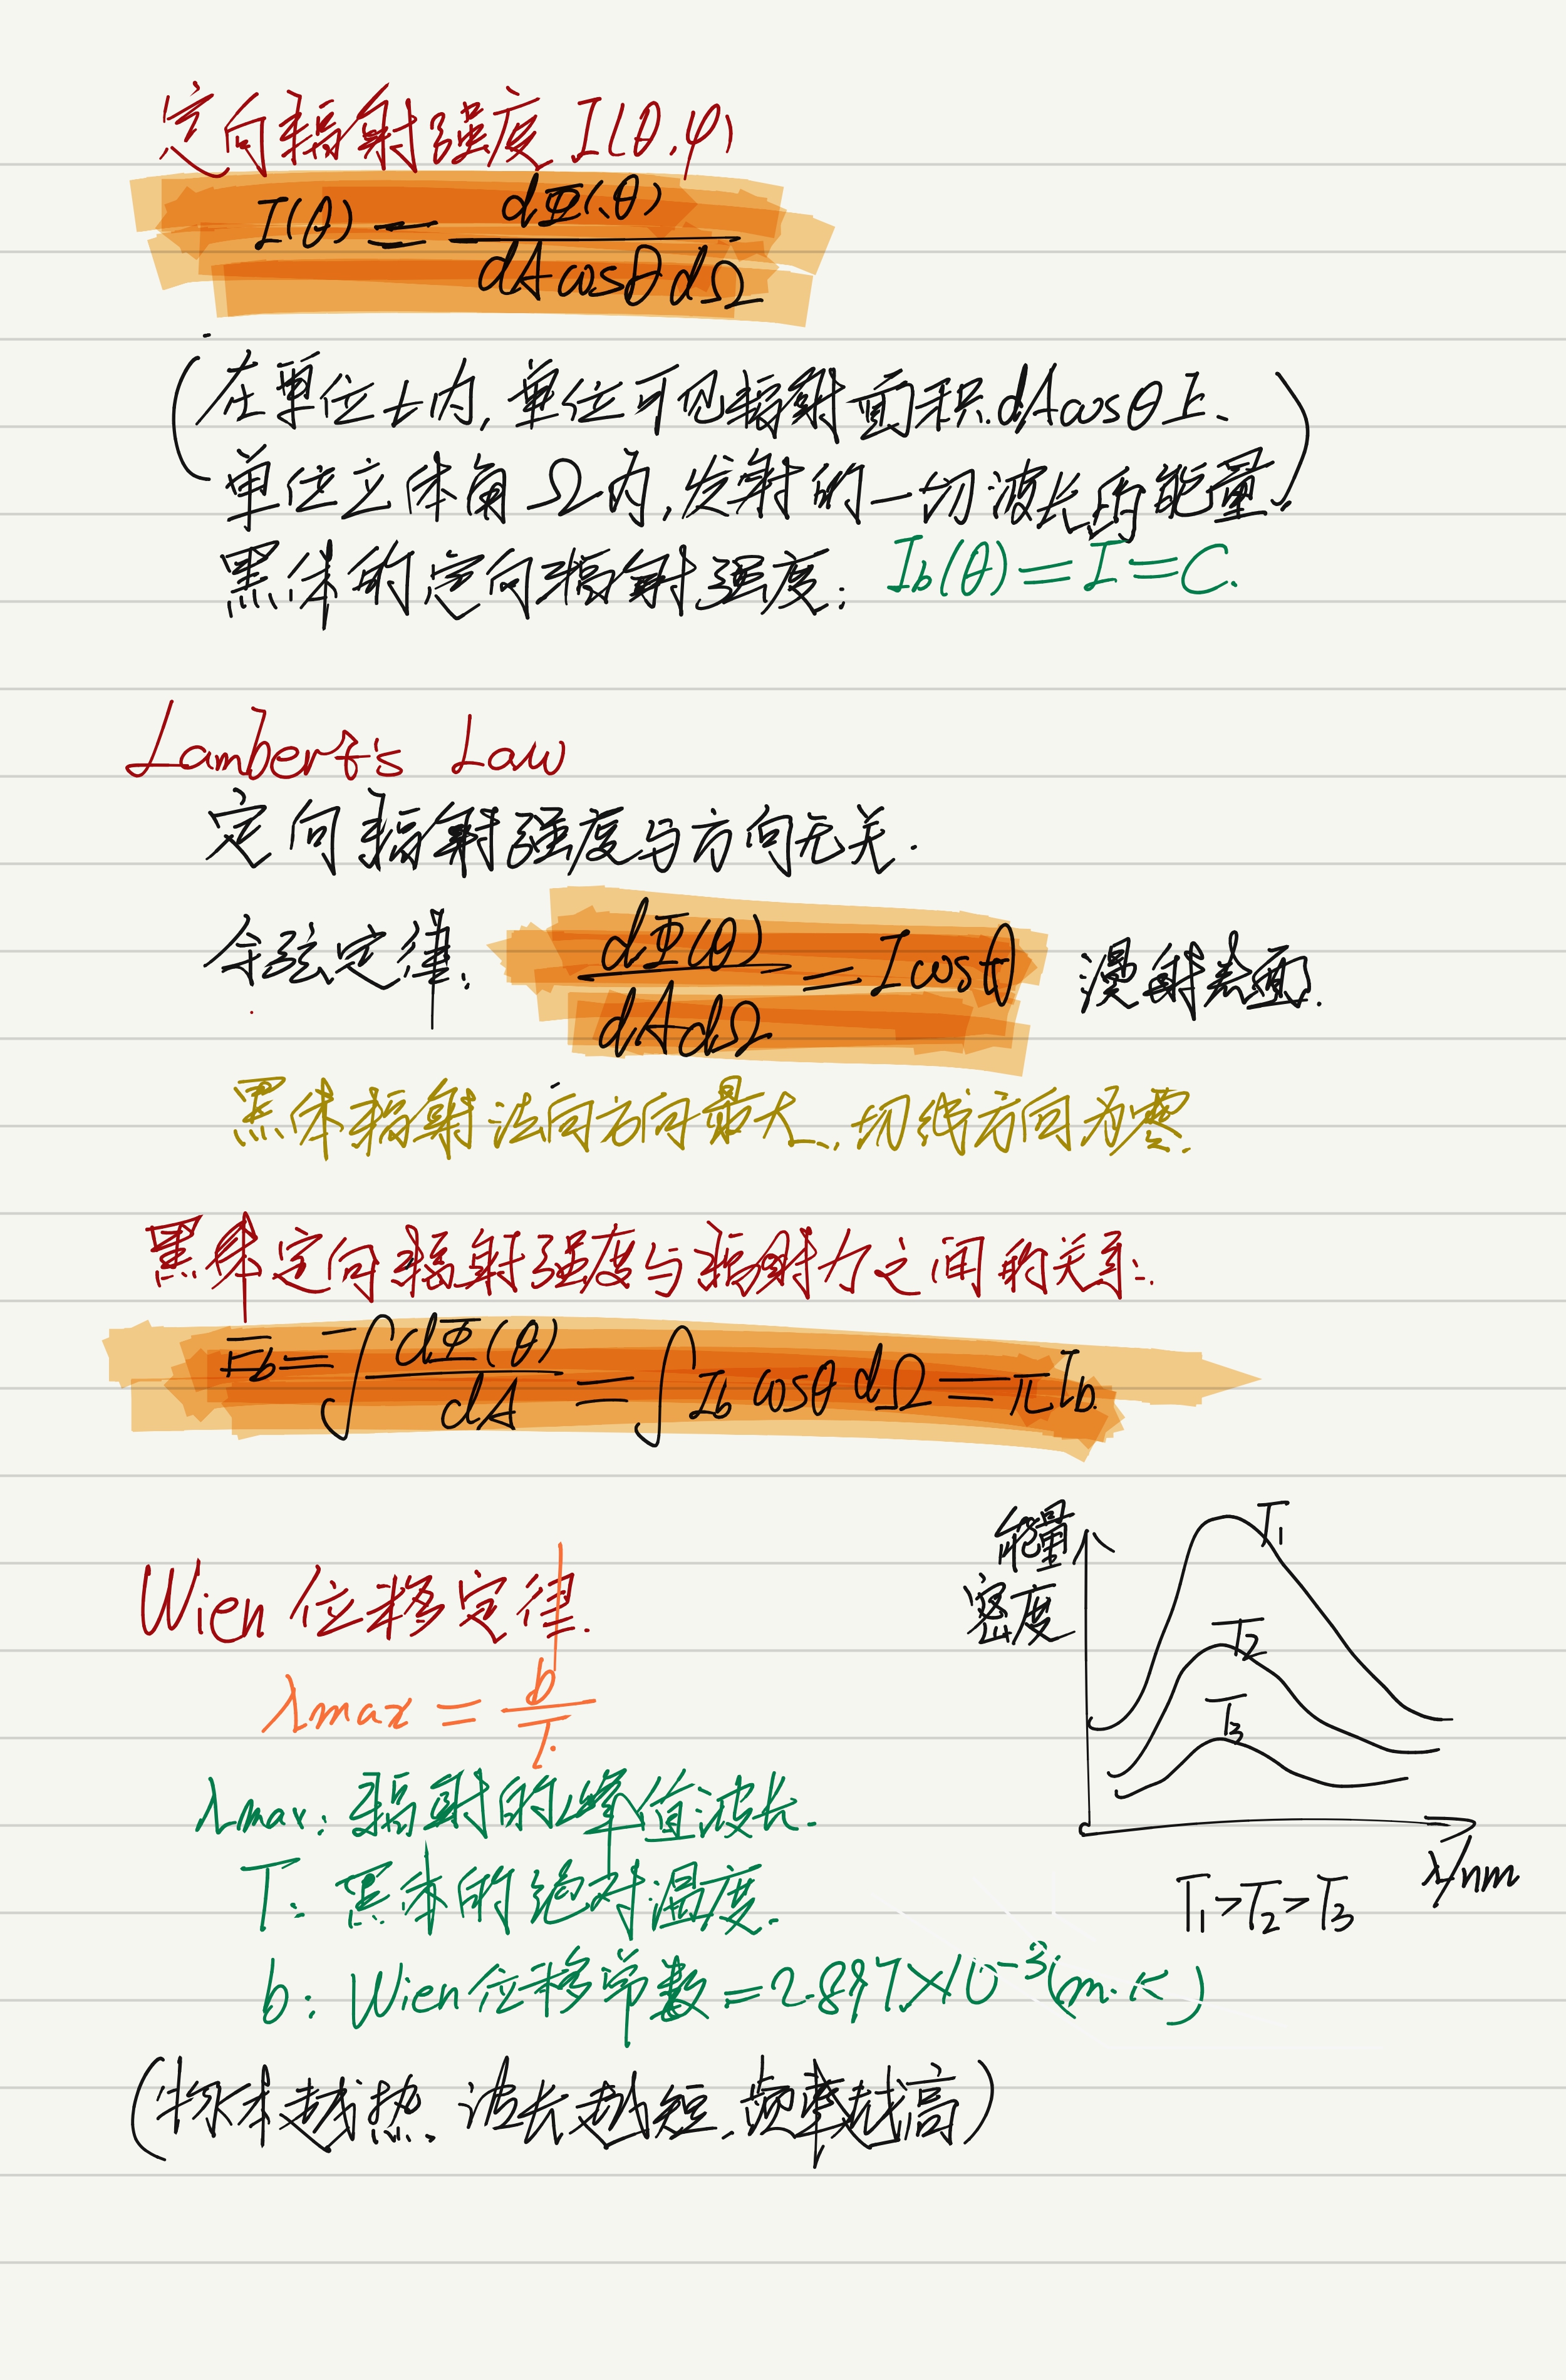 定向辐射强度 I(θ,φ)
I(θ) = dΦ(θ) / dA cosθ dΩ
(在单位t内,单位可见辐射面积dAcosθ上、
单位立体角Ω内,发射的一切波长的能量)
黑体的定向辐射强度: Ib(θ)=I=C.
Lambert's Law
定向辐射强度与方向无关.
余弦定律: dΦ(θ) / dAdΩ = Icosθ 漫射表面.
黑体辐射法向方向最大,切线方向为零.
黑体定向辐射强度与辐射力之间的关系:
Eb=∫dΦ(θ)/dA=∫Ib cosθ dΩ=πIb.
能量
密度
T1
T2
T3
λ/nm
T1>T2>T3
Wien 位移定律.
λmax = b/T.
λmax: 辐射的峰值波长.
T: 黑体的绝对温度.
b: Wien位移常数=2.897×10⁻³(m·K)
(物体越热.波长越短.频率越高)